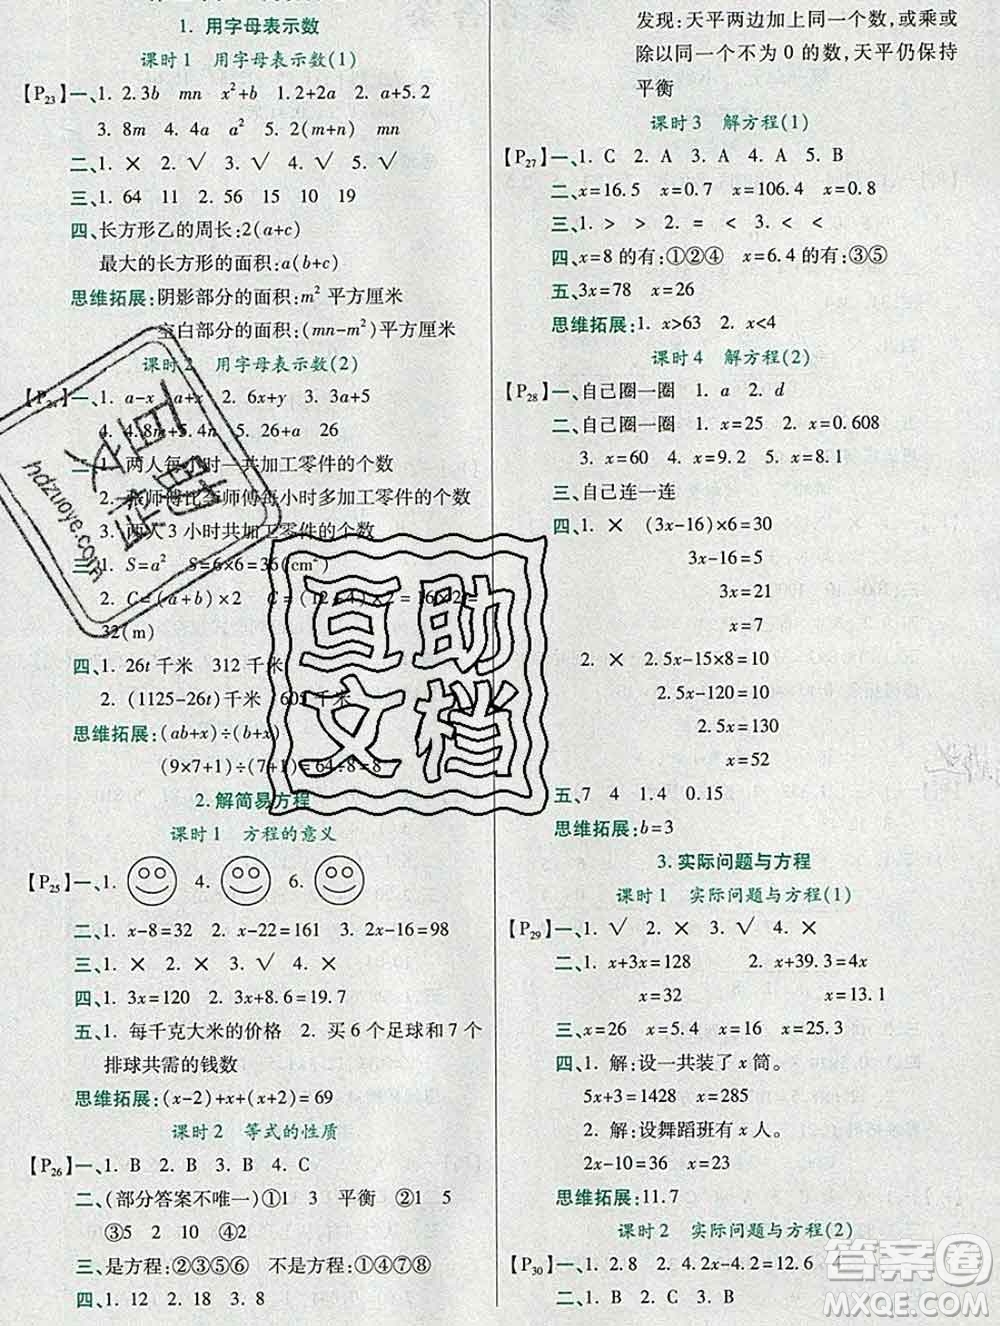 1. 用字母表示数
课时1 用字母表示数(1)
【P23】一、1. 2.3b mn x²+b 12+2a 2. a+5.2
3. 8m 4. 4a a² 5. 2(m+n) (m+n)
二、1. × 2. √ 3. √ 4. √
三、1. 64 11 2. 20 18 10 19
四、长方形乙的周长:2(a+c)
最大的长方形的面积:a(b+c)
思维拓展:阴影部分的面积:m² 平方厘米
空白部分的面积:(mn-m²)平方厘米
课时2 用字母表示数(2)
一、1. a-x a+x 2. 6x+y 3. 3a+5
4. 4.8m+5.4n 5. 26+a
二、1. 两人每小时一共加工零件的个数
2. 张师傅比李师傅每小时多加工零件的个数
3. 两人3小时共加工零件的个数
三、1. S=a² S=6×6=36(cm²)
2. C=(a+b)×2 C=(12+4)×2=16×2=
32(m)
四、1. 26t千米 312千米
2. (1125-26t)千米 605千米
思维拓展:(ab+x)÷(b+x)
(9×7+1)÷(7+1)=64÷8=8
2. 解简易方程
课时1 方程的意义
【P25】一、1. 4. 6.
二、1. x-8=32 2. x-22=161 3. 2x+16=98
三、1. × 2. × 3. √ 4. ×
四、1. 3x=120 2. 3x+3.8=19.7
五、1. 每千克大米的价格 2. 买6个足球和7个
排球共需的钱数
思维拓展:(x-2)+x+(x+2)=69
课时2 等式的性质
【P26】一、1. B 2. B 3. B 4. C
二、(部分答案不唯一)①1 3 平衡 ②1 5
③5 2 10 ④2
三、是方程:②③⑤⑥ 不是方程:①④⑦⑧
四、1. 12 2. 18 3. 8
发现:天平两边加上同一个数,或乘或
除以同一个不为0的数,天平仍保持
平衡
课时3 解方程(1)
【P27】一、1. C 2. A 3. A 4. A 5. B
二、x=16.5 x=0.7 x=106.4 x=0.8
三、1. > > 2. = < 3. < <
四、x=8的有:①②④ x=6.4的有:③⑤
五、3x=78 x=26
思维拓展:1. x>63 2. x<4
课时4 解方程(2)
【P28】一、自己圈一圈 1. a 2. d
二、自己圈一圈 1. x=25 2. x=0.608
3. x=60 4. x=9.2 5. x=8.1
三、自己连一连
四、1. × (3x-16)×6=30
3x-16=5
3x=21
x=7
2. × 2.5x-15×8=10
2.5x-120=10
2.5x=130
x=52
五、7 4 1.4 0.15
思维拓展:b=3
3. 实际问题与方程
课时1 实际问题与方程(1)
【P29】一、1. √ 2. × 3. √ 4. ×
二、1. x+3x=128 2. x+3.9=17
x=32 x=13.1
三、x=26 x=8 x=0.4 x=25.3
四、1. 解:设一共装了x筒。
5x+3=1428 x=285
2. 解:设舞蹈班有x人。
2x-10=36 x=23
思维拓展:11.7
课时2 实际问题与方程(2)
【P30】一、1. 2.8 2. 4x-2=12.6
二、1. B 2. C 3. B
互助
文档
互助
文档
hdzuoye.com
答案圈
MXQE.COM